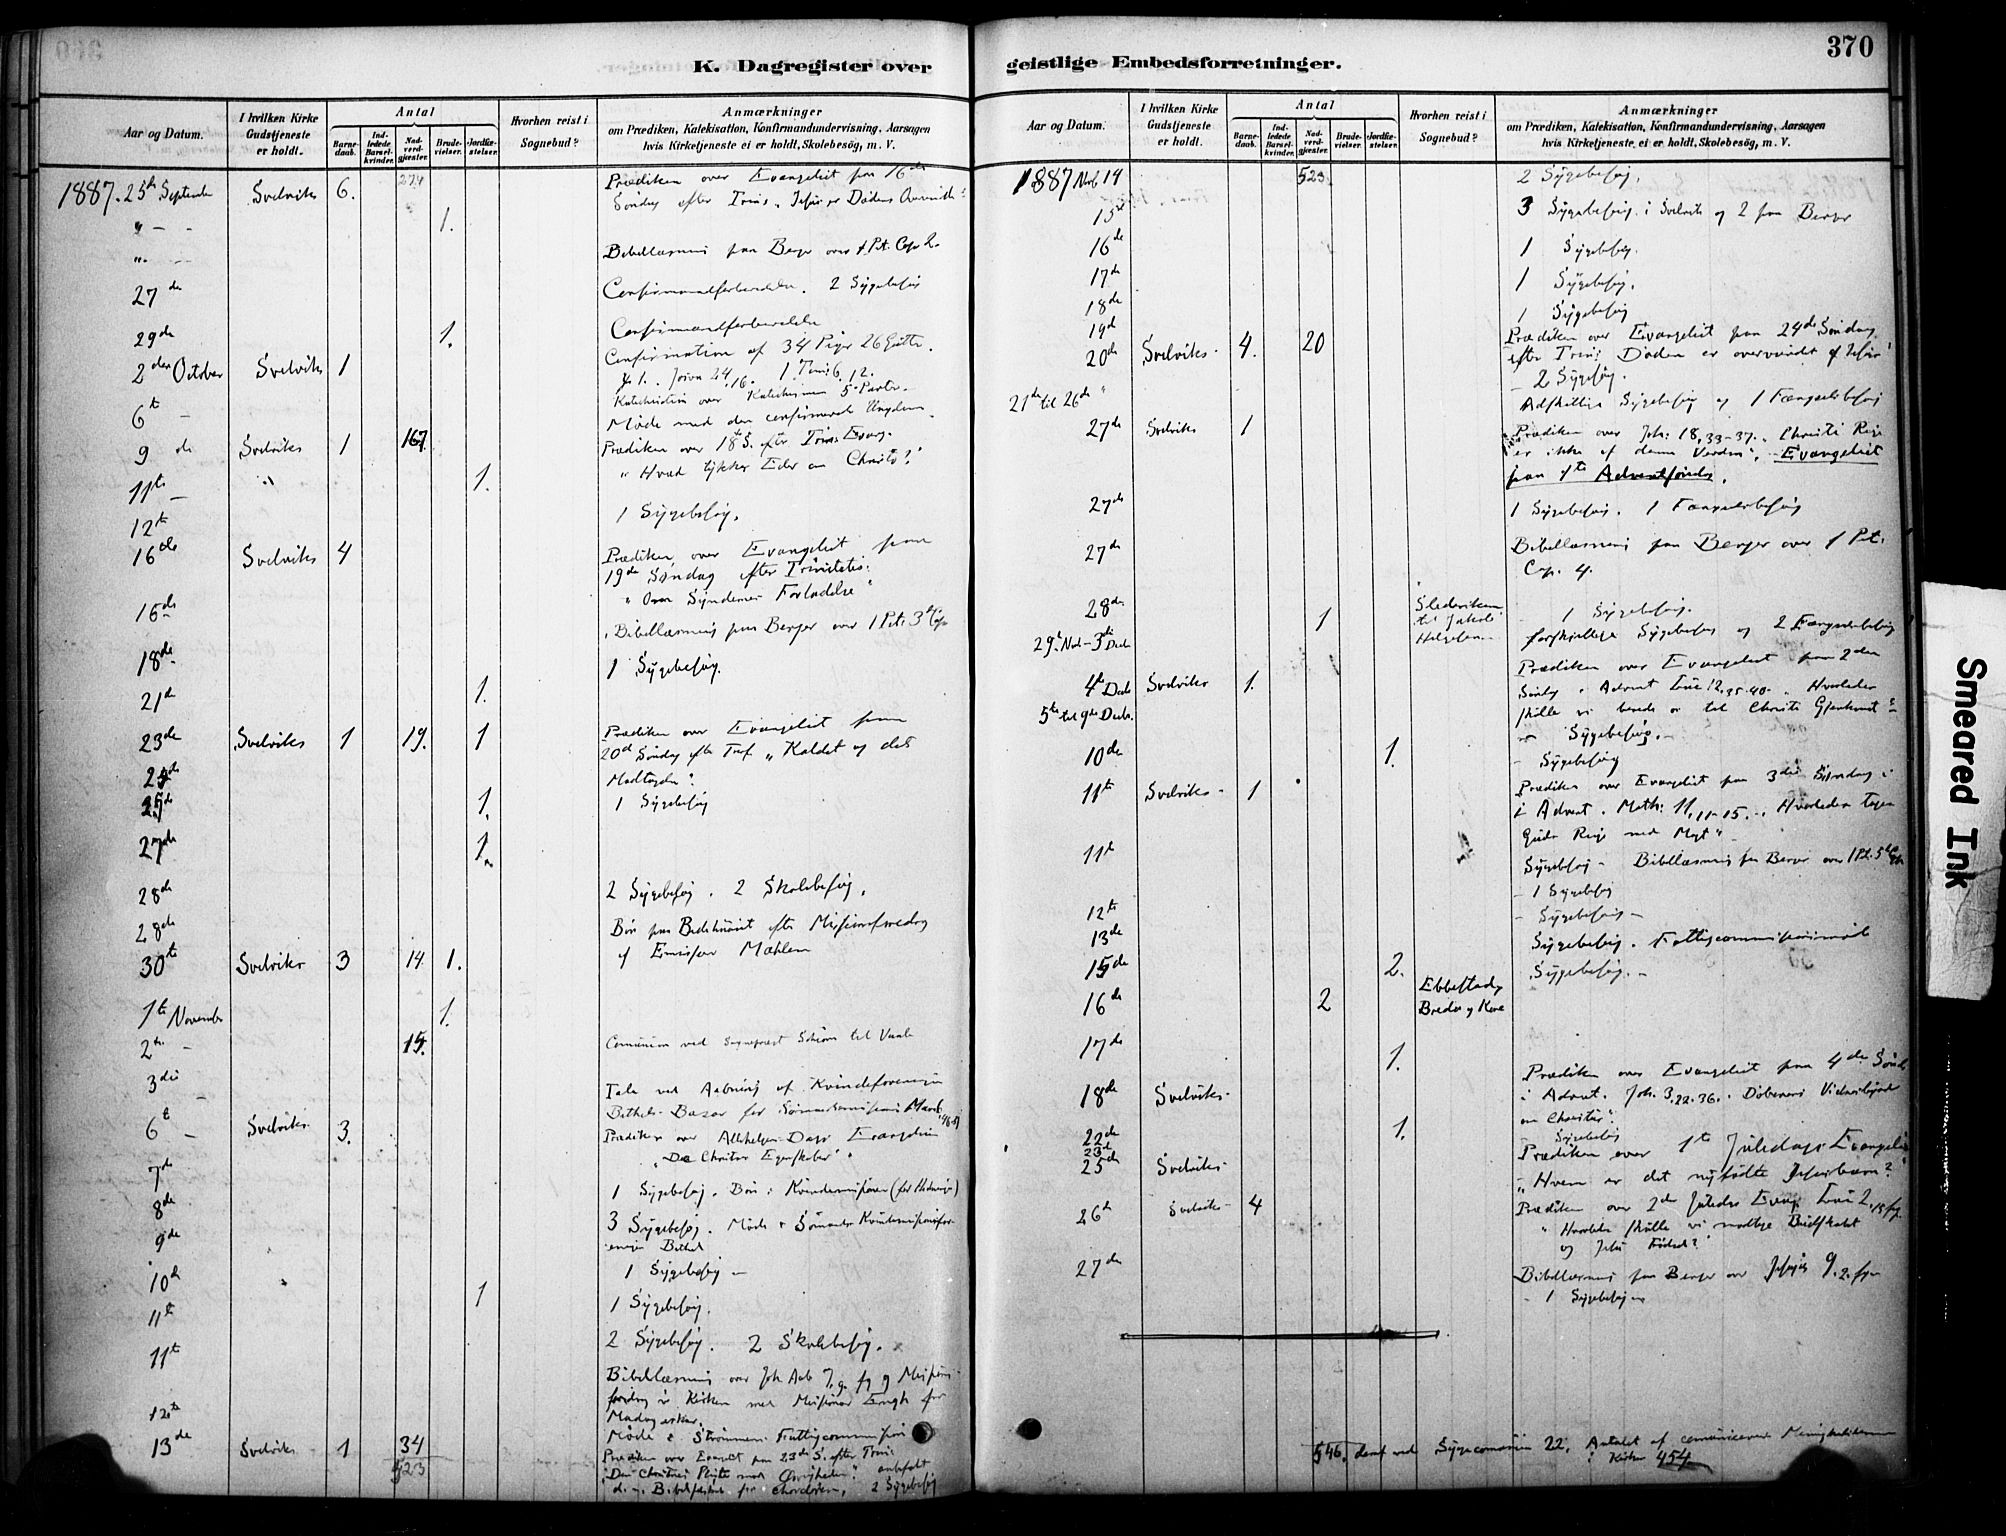 370
K. Dagregister over geistlige Embedsforretninger.
Aar og Datum.
I hvilken Kirke Gudstjeneste er holdt.
Antal
Barnedaab.
Indledede Barselkvinder.
Nadverdgjæster.
Brudevielser.
Jordfæstelser.
Hvorhen reist i Sognebud?
Anmærkninger
om Prædiken, Katekisation, Konfirmandundervisning, Aarsagen
hvis Kirketjeneste ei er holdt, Skolebesøg, m. V.
1887. 25de September Svelviks 6. 274 Prædiken over Evangeliet paa 16de
Søndag efter Trin.
" - - 1.
" - Bibellæsning paa Berger over 1 Pet. Cap 2.
27de Confirmandforberedelse. 2 Sygebesøg
29de 1. Confirmandforberedelse
2den October Svelviks 1 Confirmation af 34 Piger 26 Gutter.
Josva 24,16. 1 Tim: 6,12.
Katechisation over Katechismen 5te Parter.
6te - Møde med den confirmerede Ungdom.
9de Svelviks 1 167 Prædiken over 18de S. efter Trin: Evang.
"Hvad tykkes Eder om Christo?"
11te - " 1.
12te 1 Sygebesøg.
16de Svelviks 4 Prædiken over Evangeliet paa
19de Søndag efter Trinitatis.
"Om Syndernes Forladelse"
16de Bibellæsning paa Berger over 1 Pet: 3de Cap
18de 1 Sygebesøg.
21de 1.
23de Svelviks 1 19. 1 Prædiken over Evangeliet paa
20de Søndag efter Tref. "Kaldet og dets
Modtagelse".
25de
25de 1. 1 Sygebesøg
27de 1.
28de 2 Sygebesøg. 2 Skolebesøg.
28de Bøn paa Bedehuset efter Missionsforedrag
af Emissær Mæhlem
30te Svelviks 3 14. 1.
1te November 1.
2den - 15. Comunion ved Sognepræst Schiøren til Vaale
3die - Tale ved Aabning af Kvindeforeningen
Bethels Bazar for Sømandsmissionen
6te - Svelviks 3. Prædiken over Allehelgens Dags Evangelium
"De Christnes Egenskaber"
7de 1 Sygebesøg. Bøn i Kvindemissionen
8de 3 Sygebesøg. Møde i Sømands Kvindemissionsfor-
eningen Bethel
9de 1 Sygebesøg -
10de 1 1 Sygebesøg.
11te 2 Sygebesøg. 2 Skolebesøg.
11te Bibellæsning over Joh. Aab 7,9. fg og Missions-
foredrag i Kirken med Missionær Engh fra
Madagaskar.
12te Møde i Strømmens Fattigcommission
13de Svelviks 1 34 Prædiken over Evangeliet paa 23de S. efter Trin:
523 "Den Christnes Pligter mod Øvrigheden". anbefalt
2 Sygebesøg
Aar og Datum.
I hvilken Kirke Gudstjeneste er holdt.
Antal
Barnedaab.
Indledede Barselkvinder.
Nadverdgjæster.
Brudevielser.
Jordfæstelser.
Hvorhen reist i Sognebud?
Anmærkninger
om Prædiken, Katekisation, Konfirmandundervisning, Aarsagen
hvis Kirketjeneste ei er holdt, Skolebesøg, m. V.
1887 Novb 14 523 2 Sygebesøg.
15de 3 Sygebesøg i Svelvik og 2 paa Berger
16de 1 Sygebesøg.
17de 1 Sygebesøg.
18de 1 Sygebesøg
19de
20de Svelviks 4. 20 Prædiken over Evangeliet paa 24de Søndag
efter Trin: Døden er overvundet af Jesus
- 2 Sygebesøg.
21de til 26de " Adskillige Sygebesøg og 1 Fængselsbesøg
27de Svelviks 1 Prædiken over Joh: 18,33-37. "Christi Rige
er ikke af denne Verden". Evangeliet
paa 1te Adventsøndag.
27de 1 Sygebesøg. 1 Fængselsbesøg
27de Bibellæsning paa Berger over 1 Pet:
Cap. 4.
28de 1 til Jakob 1 Sygebesøg.
29de Nov - 3die Decb forskjellige Sygebesøg og 2 Fængselsbesøg
4de Decb Svelviks 1. Prædiken over Evangeliet paa 2den
Søndag i Advent Luc 12,35-40. "Hvorledes
skulle vi berede os til Christi Gjenkomst"
5te til 9de Decb. Sygebesøg. -
10de 1. - Sygebesøg
11te Svelviks 1 Prædiken over Evangeliet paa 3die Søndag i
i Advent. Math: 11,11-15. "Hvorledes tages
Guds Rige med Magt"
11te Sygebesøg - Bibellæsning paa Berger over 1 Pet. 5te Cap
- 1 Sygebesøg
12te - Sygebesøg -
13de Sygebesøg. Fattigcommissionsmøde
15de 2. Sygebesøg. -
16de 2 Ebbestad,
Bredes og Kone
17de 1.
18de Svelviks Prædiken over Evangeliet paa 4de Sønd
i Advent. Joh. 3,22-36. "Døberens Vidnesbyrd
om Christus".
22de 1. - Sygebesøg
23de
25de Svelviks Prædiken over 1te Juledags Evangeli
"Hvem er det nyfødte Jesusbarn?"
26de Svelviks 4 Prædiken over 2den Juledags Evang. Luc 2,
"Hvorledes skulle vi modtage Budskabet
om Jesu Fødsel?"
27de Bibellæsning paa Berger over Jesajas 9,2. fgn
- 1 Sygebesøg -
546. deraf ved Sygecomunion 22. Antallet af comunicerende
i Kirken 454
Smeared Ink